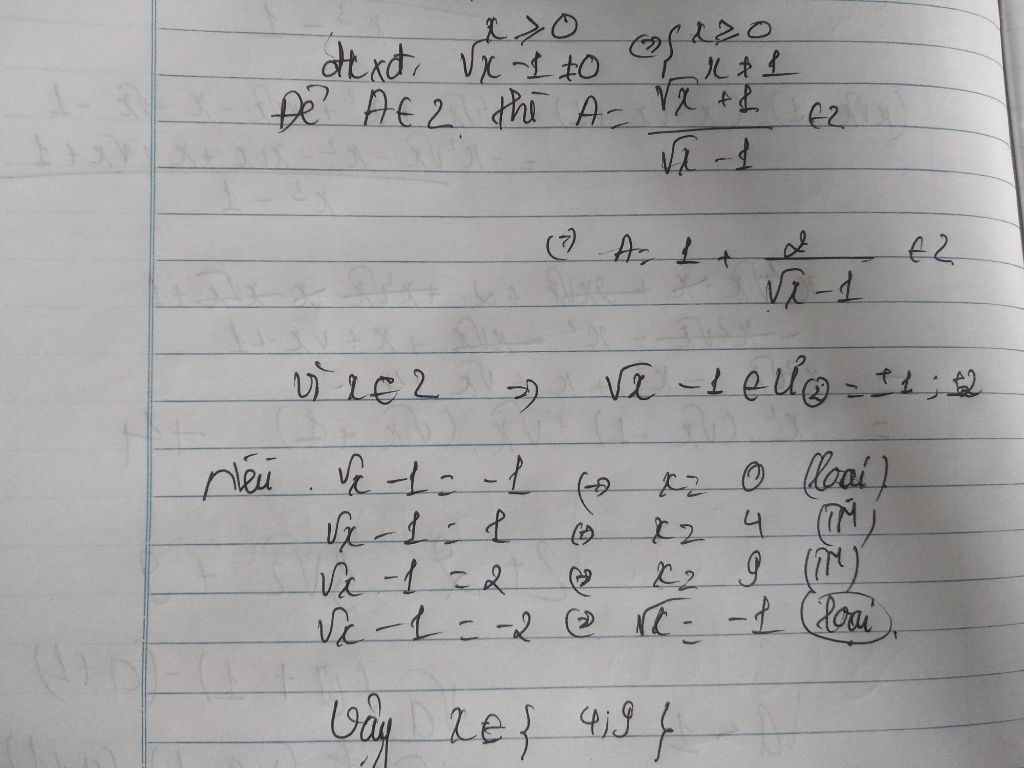 x ⩾ 0 ⇔ { x ⩾ 0
đkxđ, √x - 1 ≠ 0 x ≠ 1
Để A ∈ Z thì A = (√x + 1)/(√x - 1) ∈ Z
⇔ A = 1 + 2/(√x - 1) ∈ Z
Vì x ∈ Z ⇒ √x - 1 ∈ Ư(2) = ±1 ; ±2
Nếu . √x - 1 = -1 ⇔ x = 0 (loại)
√x - 1 = 1 ⇔ x = 4 (TM)
√x - 1 = 2 ⇔ x = 9 (TM)
√x - 1 = -2 ⇔ √x = -1 (loại).
Vậy x ∈ { 4; 9 }